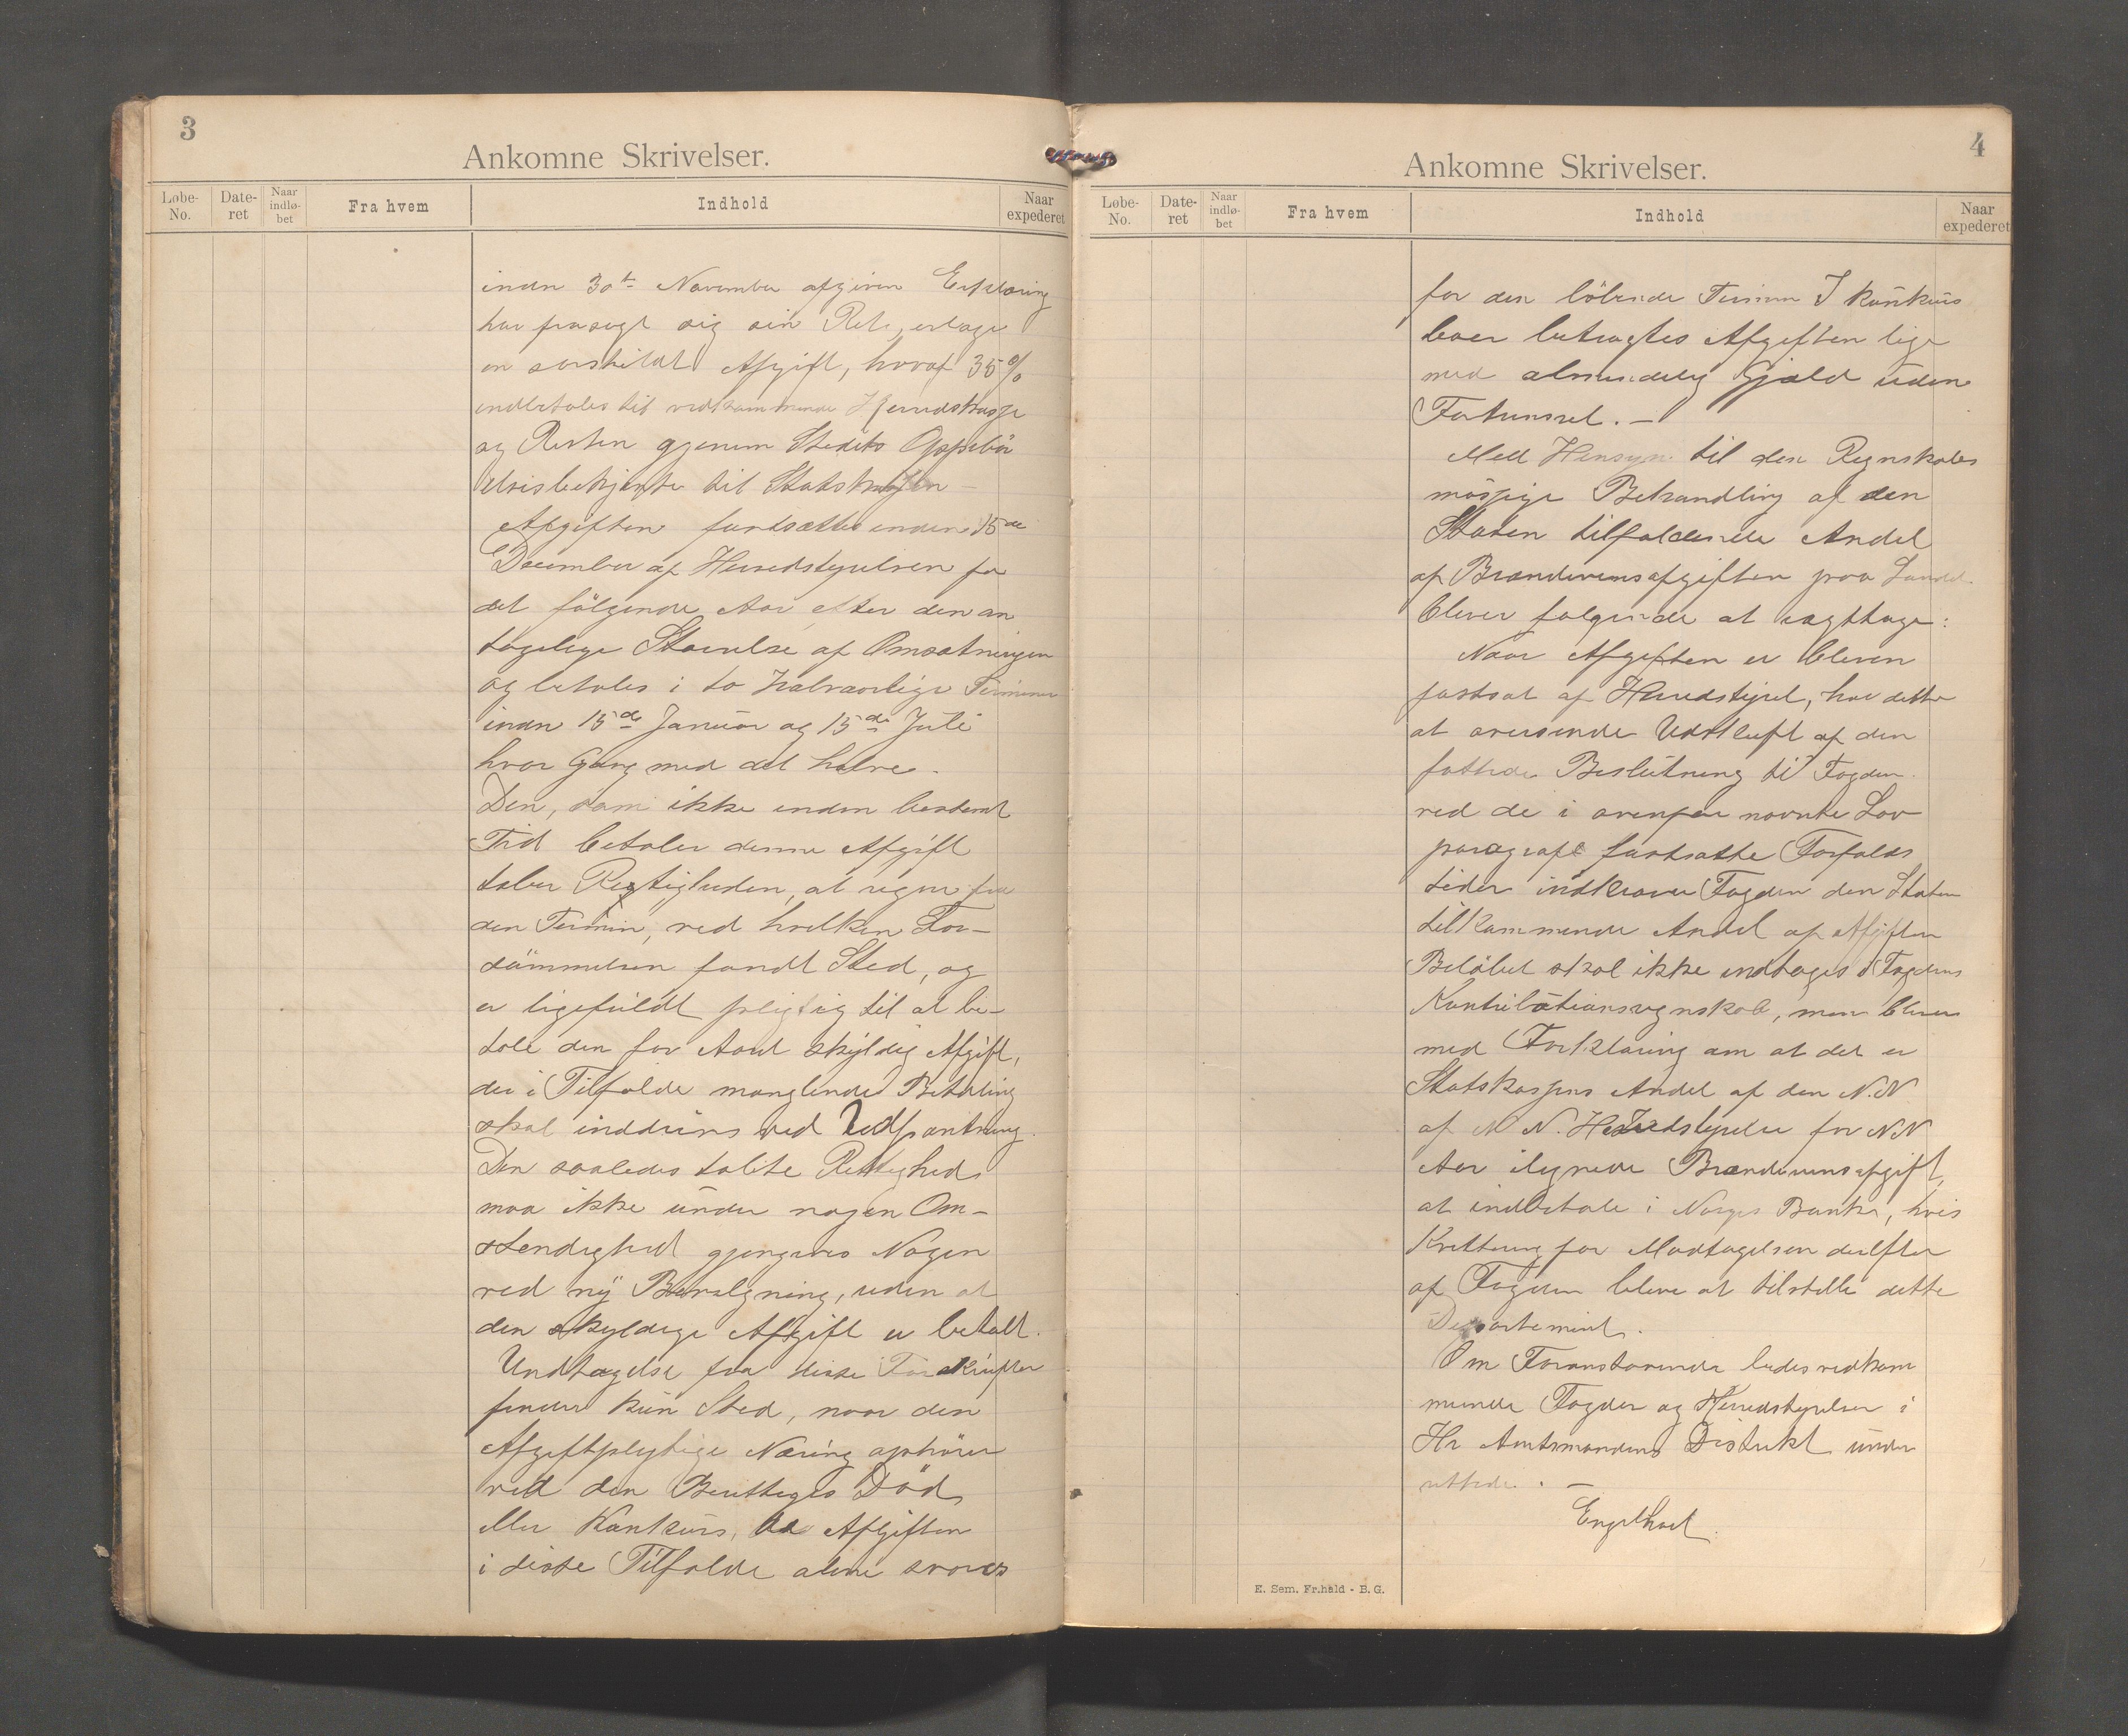 3
Ankomne Skrivelser.
Løbe-No. Date-ret Naar indlø-bet Fra hvem Indhold Naar expederet
inden 30te November afgiven Erklæring
har frasagt sig sin Ret, erlage
en særskilt Afgift, hvoraf 35%
indbetales til vedkommende Herredskasse
og Resten gjennem Stedets Oppebør
elsisbetjente til Statskassen
Afgiften fastsættes inden 15de
December af Herredstyrelsen for
det følgende Aar efter den an
tagelige Størrelse af Omsætningen
og betales i to halvaarlige Terminer
inden 15de Januar og 15de Juli
hver Gang med det halve.
Den, som ikke inden bestemt
Tid betaler denne Afgift
taber Rettigheden, at regne fra
den Termin, ved hvilken For-
sømmelsen fandt Sted, og
er ligefuldt pligtig til at be-
tale den for Aaret skyldig Afgift,
der i Tilfælde manglende Betaling
skal inddrives ved Udpantning.
Den saaledes tabte Rettighed
maa ikke under nogen Om-
stendighed gjengives Nogen
ved ny Bevilgning, uden at
den skyldige Afgift er betalt.
Undtagelse fra disse Forskrifter
finder kun Sted, naar den
Afgiftpligtige Næring ophører
ved den Berettiges Død
eller Konkurs, da Afgiften
i disse Tilfælde alene svares
4
Ankomne Skrivelser.
Løbe-No. Date-ret Naar indlø-bet Fra hvem Indhold Naar expederet
for den løbende Termin I konkurs
boer betragtes Afgiften lige
med almindelig Gjæld uden
Fortrinsret. —
Med Hensyn til den Regnskabs
mæssige Behandling af den
Staten tilfaldende Andel
af Brændevinsafgiften paa Landet
bliver følgende at iagttage:
Naar Afgiften er bleven
fastsat af Herredstyret, har dette
at oversende Udskrift af den
fattede Beslutning til Fogden.
ved de i ovenfor nævnte Lov
paragraf fastsatte Forfalds
tider indkræver Fogden den Staten
tilkommende Andel af Afgiften
Beløbet skal ikke indtages i Fogdens
Kontributionsregnskab, men bliver
med Forklaring om at det er
Statskassens Andel af den N.N
af N N. Herredstyrelse for N N
Aar ilignede Brændevinsafgift,
at indbetale i Norges Bank, hvis
Kvittering for Modtagelsen derefter
af Fogden bliver at tilstille dette
Departement.
Om Foranstaaende bedes vedkom
mende Fogder og Herredstyrelser i
Hr Amtmandens Distrikt under
rettede. —
Engelhart.
E. Sem. Fr.hald - B. G.